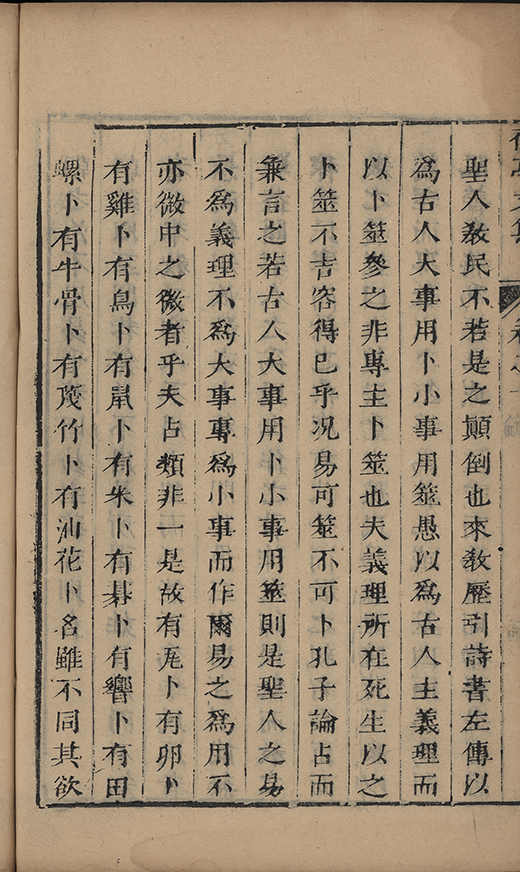 聖人敎民不若是之顚倒也來敎歷引詩書左傳以
爲古人大事用卜小事用筮愚以爲古人主義理而
以卜筮參之非專主卜筮也夫義理所在死生以之
卜筮不吉容得已乎况易可筮不可卜孔子論占而
兼言之若古人大事用卜小事用筮則是聖人之易
不爲義理不爲大事專爲小事而作爾易之爲用不
亦微中之微者乎夫占類非一是故有𤬦卜有卵卜
有雞卜有鳥卜有鼠卜有米卜有棊卜有響卜有田
螺卜有牛骨卜有篾竹卜有油花卜名雖不同其欲